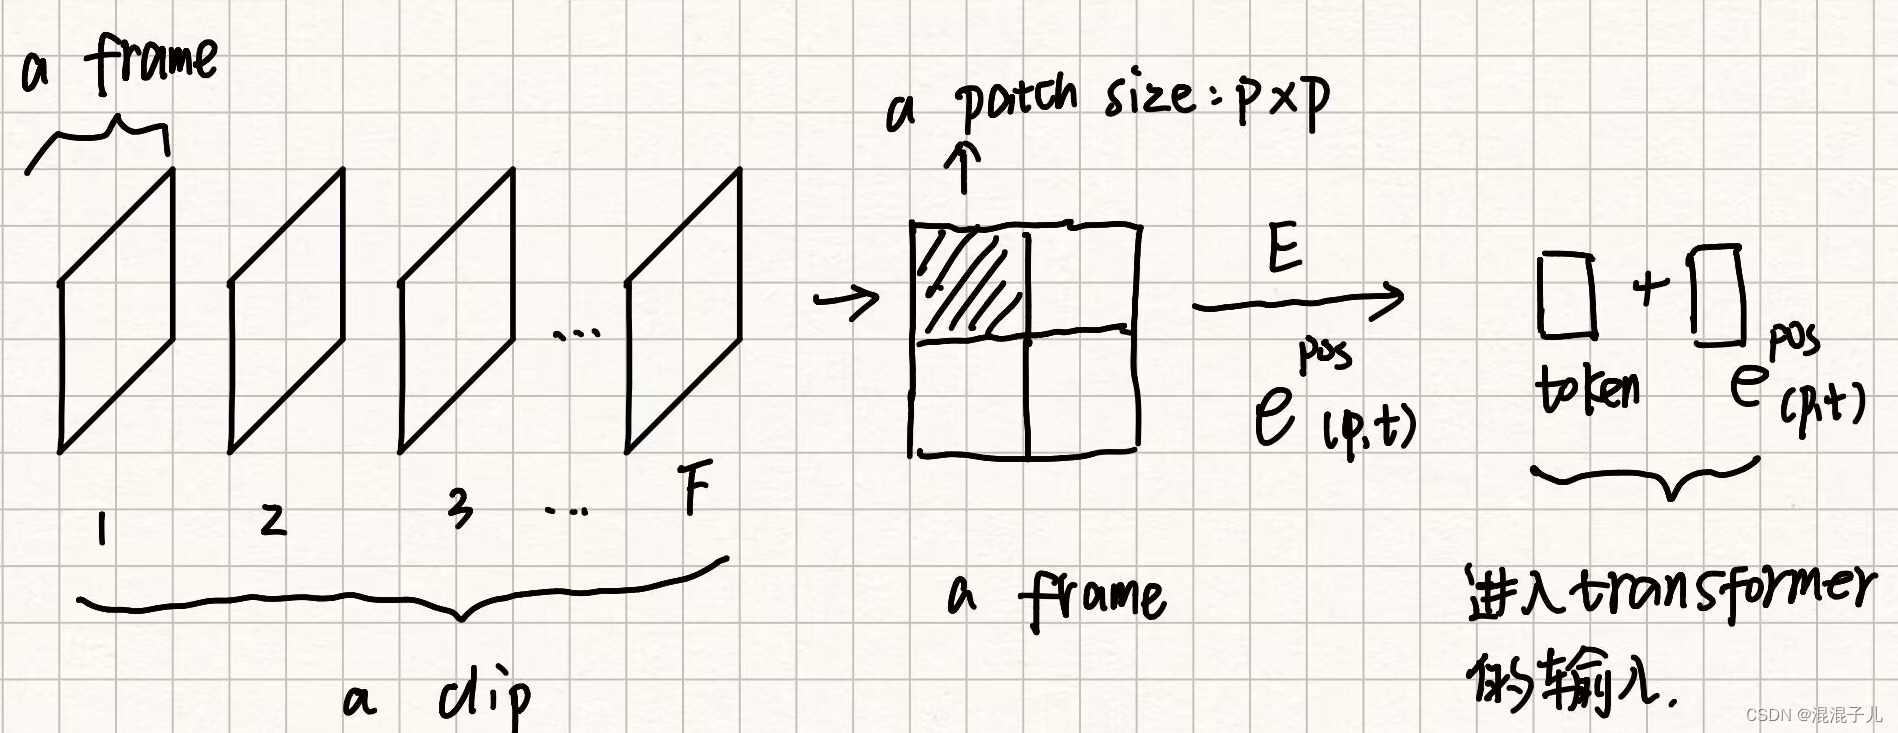 a frame
1 2 3 ... F
a clip
a patch size: p×p
a frame
E
e pos (p,t)
token + e pos (p,t)
进入transformer
的输入.
CSDN @混混子儿